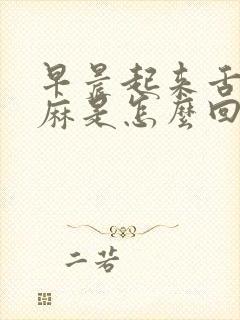 早晨起来舌
麻是怎麼回
二若